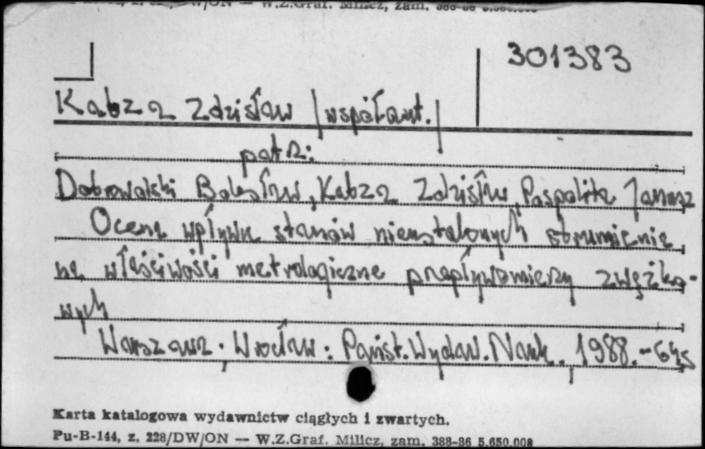 W.Z.Graf. Milicz, zam. 388-86 5.650.008
301383
Kabza Zdzisław /współaut./
patrz:
Dobrowolski Bolesław, Kabza Zdzisław, Pospolita Janusz
Ocena wpływu stanów nieustalonych strumienia
na właściwości metrologiczne przepływomierzy zwężko-
wych
Warszawa. Wrocław: Państ. Wydaw. Nauk., 1988. - 64s
Karta katalogowa wydawnictw ciągłych i zwartych.
Pu-B-144, z. 228/DW/ON — W.Z.Graf. Milicz, zam. 388-86 5.650.008